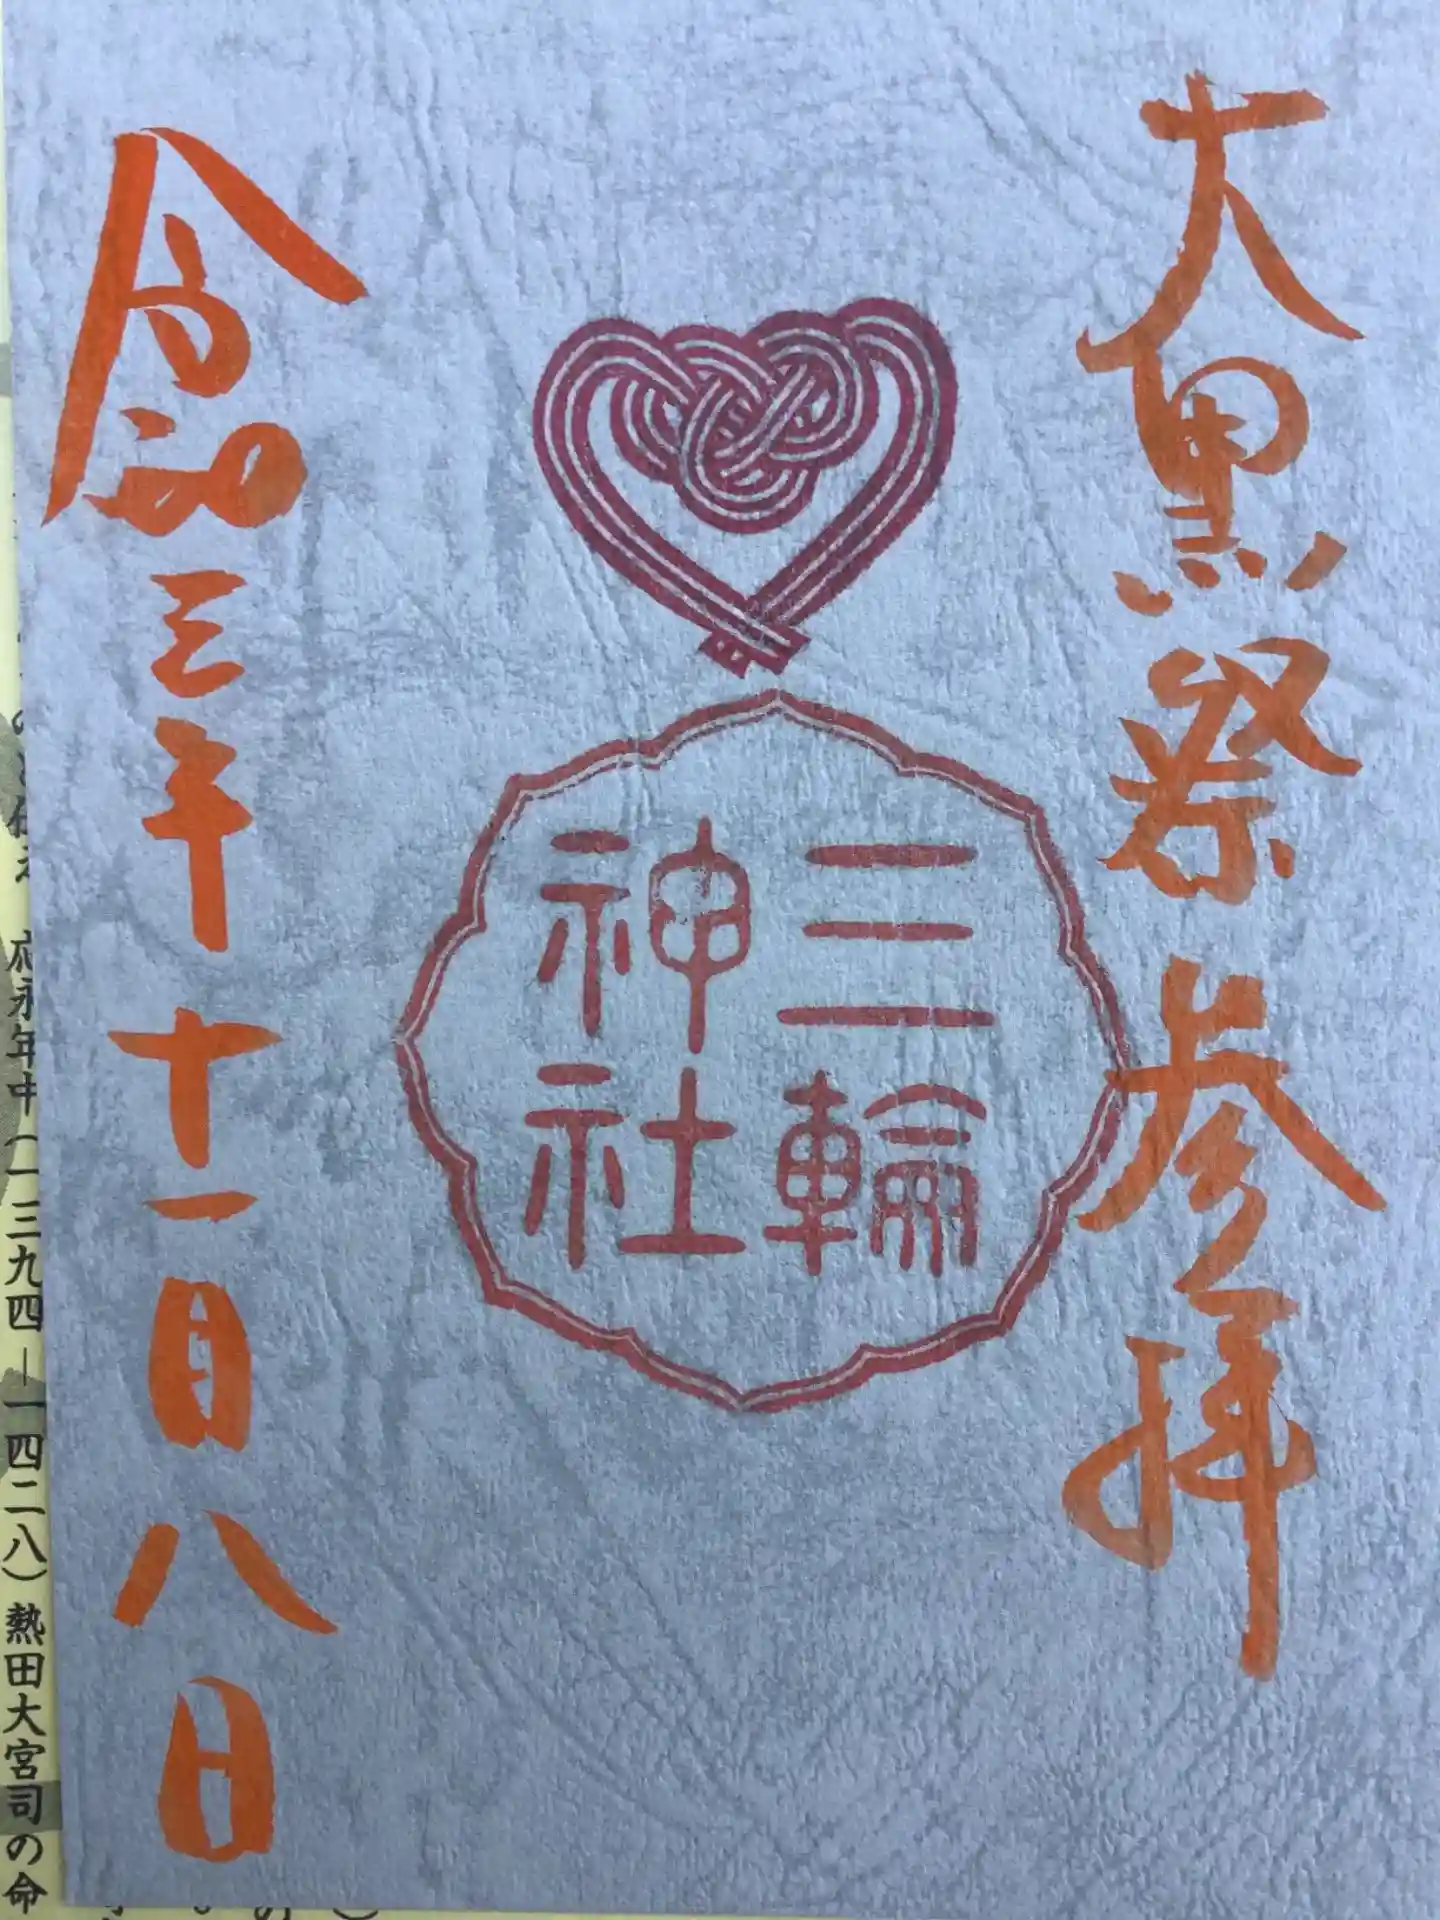 大黒祭参拝
三輪
神社
令和三年十一月八日
応永年中(一三九四―一四二八)熱田大宮司の命